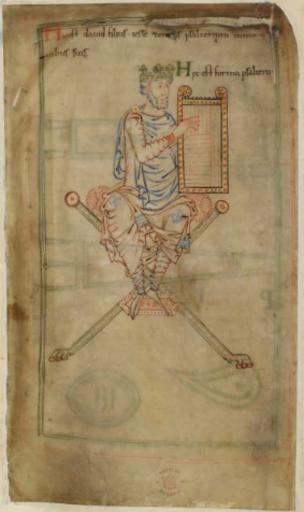 Hic est david filius iesse tenens psalterium in mani
bus suis
Hec est forma psalterii